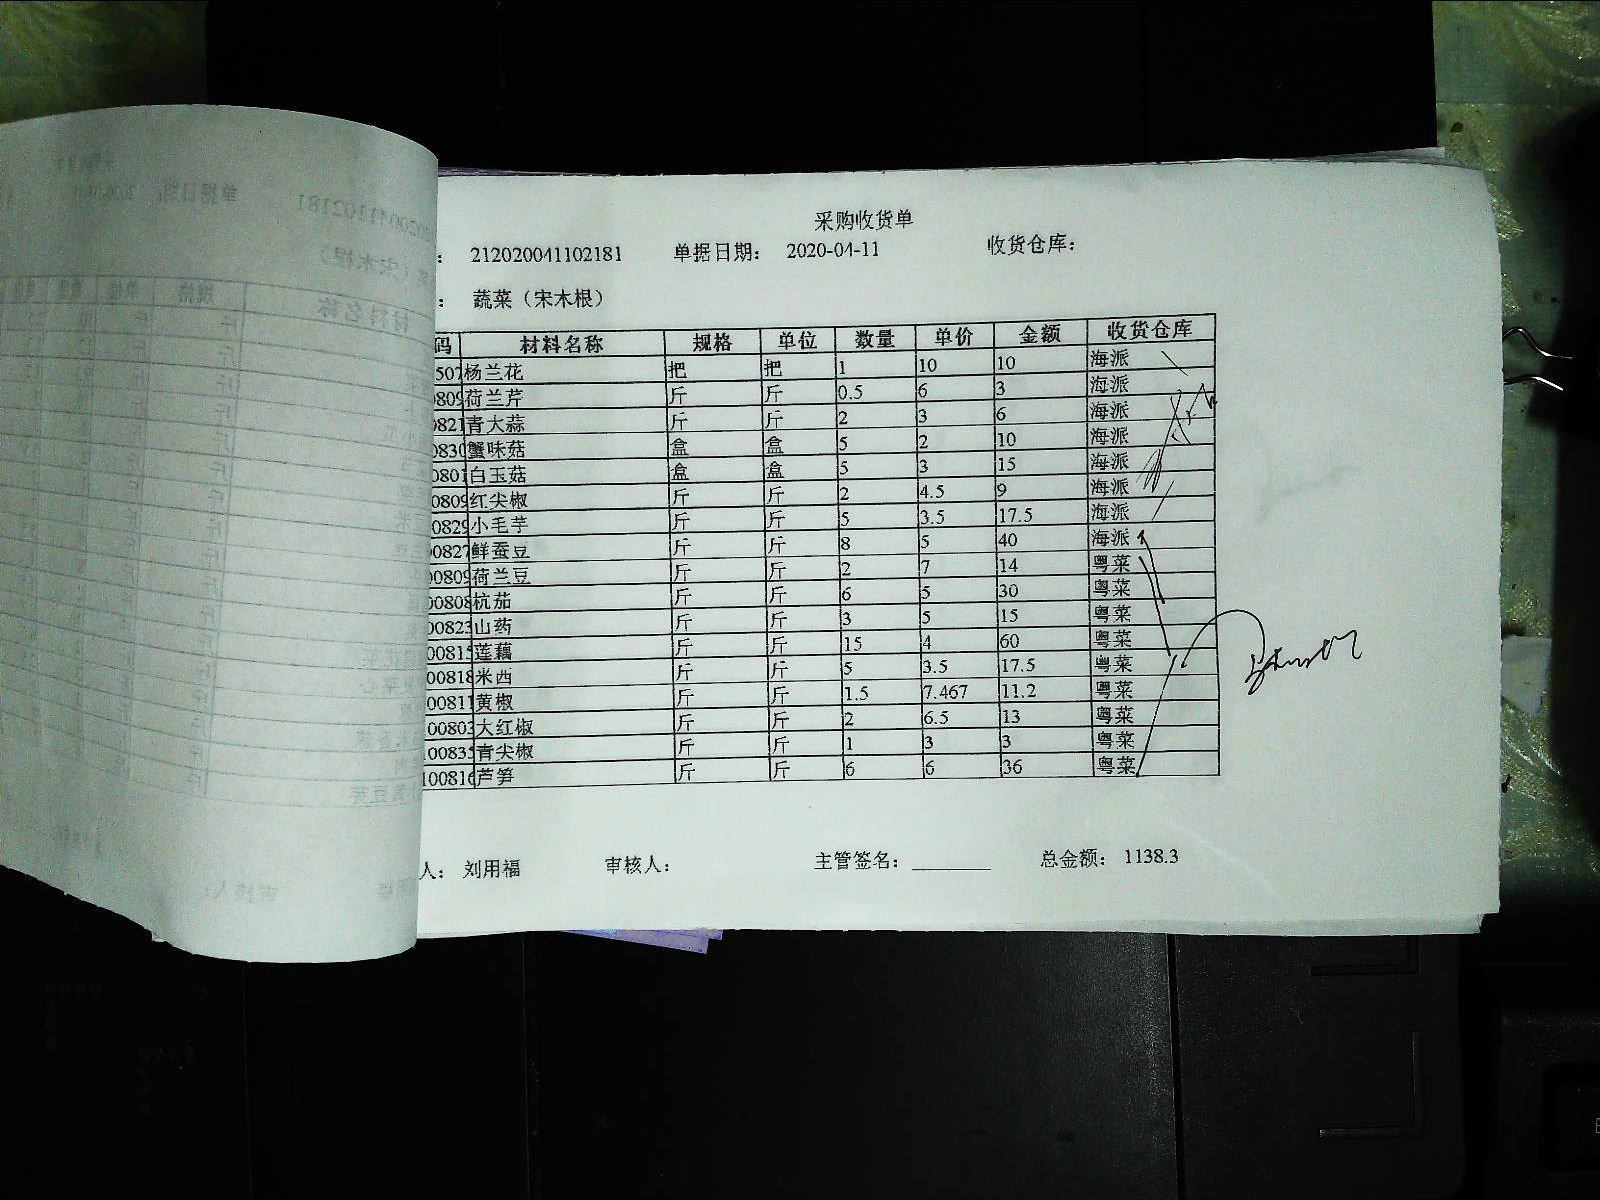 采购收货单
： 212020041102181 单据日期： 2020-04-11 收货仓库：
： 蔬菜（宋木根）
码 材料名称 规格 单位 数量 单价 金额 收货仓库
507 杨兰花 把 把 1 10 10 海派
0809 荷兰芹 斤 斤 0.5 6 3 海派
0821 青大蒜 斤 斤 2 3 6 海派
0830 蟹味菇 盒 盒 5 2 10 海派
0801 白玉菇 盒 盒 5 3 15 海派
0809 红尖椒 斤 斤 2 4.5 9 海派
00829 小毛芋 斤 斤 5 3.5 17.5 海派
00827 鲜蚕豆 斤 斤 8 5 40 海派
00809 荷兰豆 斤 斤 2 7 14 粤菜
00808 杭茄 斤 斤 6 5 30 粤菜
00823 山药 斤 斤 3 5 15 粤菜
00815 莲藕 斤 斤 15 4 60 粤菜
00818 米西 斤 斤 5 3.5 17.5 粤菜
00811 黄椒 斤 斤 1.5 7.467 11.2 粤菜
00803 大红椒 斤 斤 2 6.5 13 粤菜
00835 青尖椒 斤 斤 1 3 3 粤菜
100816 芦笋 斤 斤 6 6 36 粤菜
人： 刘用福 审核人： 主管签名： 总金额： 1138.3